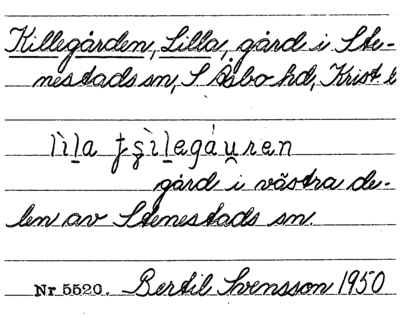 Killegården, Lilla, gård i Ste-
nestads sn, S Åsbo hd, Krist l
lìla ꞎs̀ìlegáu̯ren
gård i västra de-
len av Stenestads sn.
Nr 5520. Bertil Svensson 1950